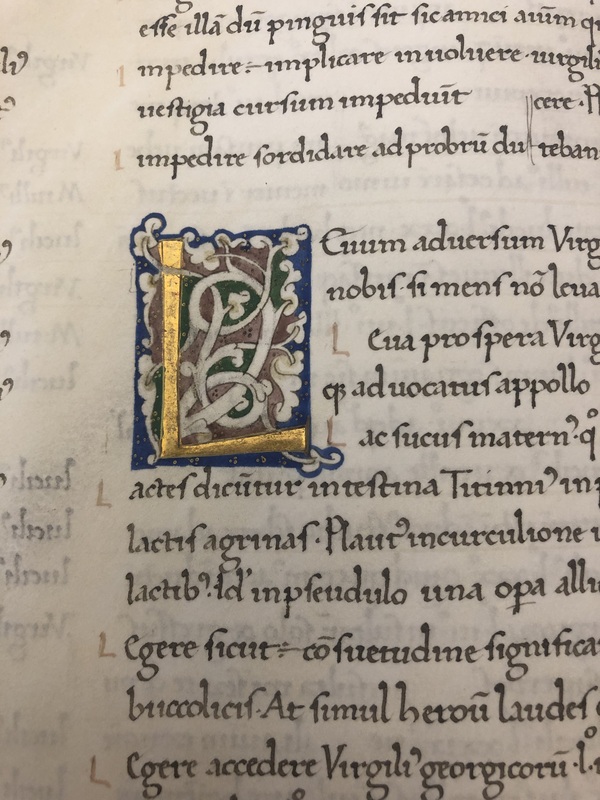 esse illã dũ pinguis sit sic amici aiũm
I mpedire ÷ implicare inuoluere · uirgili
uestigia cursum impediũt
cere ·
I mpedire sordidare ad probrũ du
teban
L Euum aduersum Virg
nobis · si mens nõ leua
L Eua prospera Virg
qꝫ aduocatus appollo
L ac sucus matern᾿ · qͦ
L actes dicũtur intestina Titinni᾿ in p
lactis agrinas · Plaut᾿ incurculione
lactib᾿ · Id᾿ inpseudulo una oꝑa alli
L Egere sicut ÷ cõsuetudine significa
buccolicis · At simul heroũ laudes
L Egere accedere Virgili᾿ georgicorũ · lͦ ·